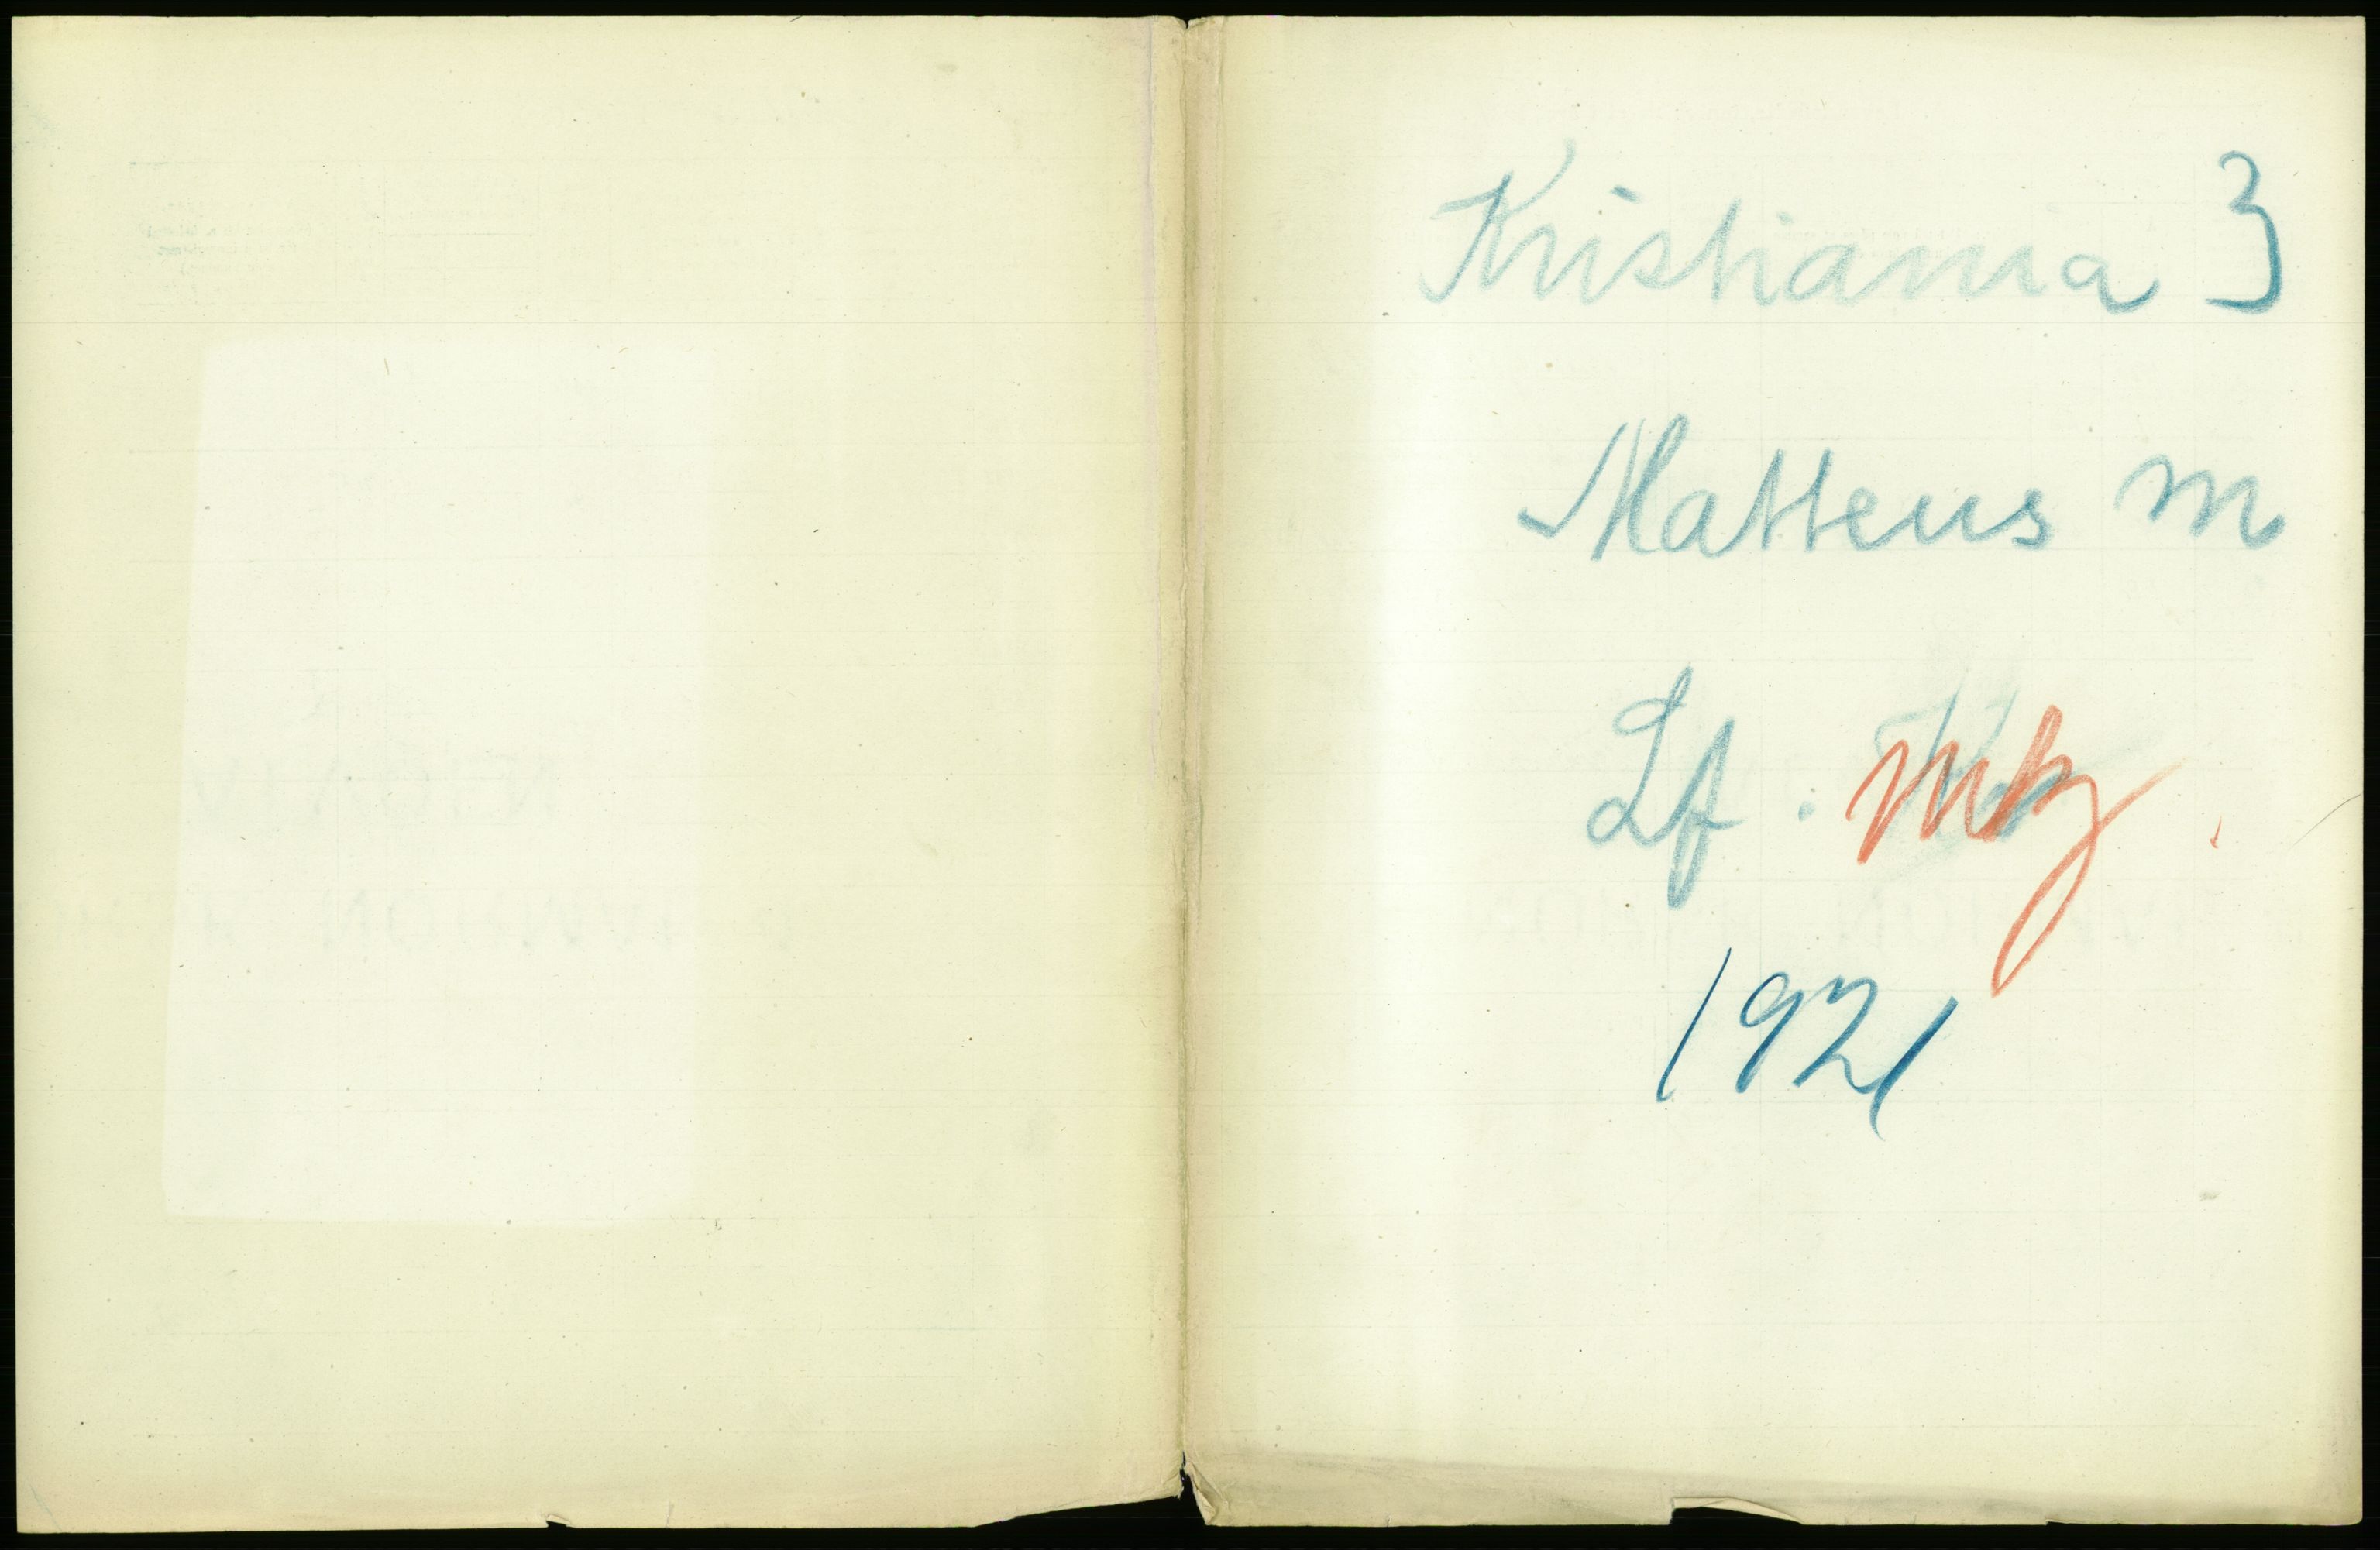 Kristiania 3
Matteus m
Lf.
1921